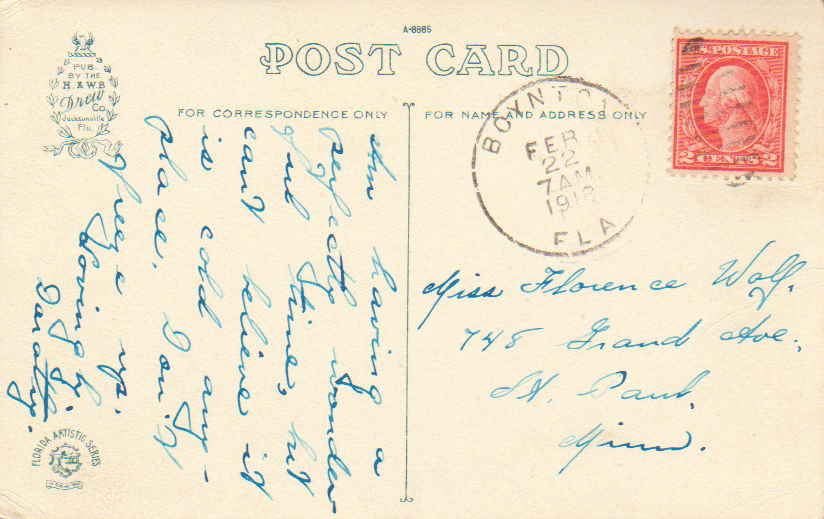 A-8885
POST CARD
PUB.
BY THE
H. & W. B.
Drew
Co.
Jacksonville
Fla.
FOR CORRESPONDENCE ONLY
FOR NAME AND ADDRESS ONLY
BOYNTON
FEB
22
7 AM
1918
FLA
U.S. POSTAGE
2 CENTS 2
Am having a
perfectly wonder
ful time, but
can't believe it
is cold any-
place. Don't
freeze up.
Lovingly,
Dorothy.
Miss Florence Wolf.
748 Grand Ave.
St. Paul,
Minn.
FLORIDA ARTISTIC SERIES